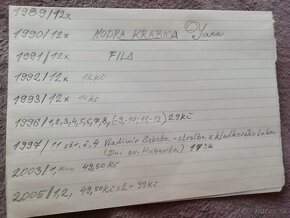 1989/12x
1990/12x MODRA KRABICA Jara
1991/12x FILA
1992/12x 12Kč
1993/12x 14Kč
1998/1,2,3,4,5,6,7,8,(-9,-10,-11-12) 29Kč
1997/11 č.4 Vladimír - streľba z kladkového luku
(Dni sv. Huberta) 17
2003/1 kus 49,50Kč
2005/1,2, 49,50Kč x 2 = 99Kč